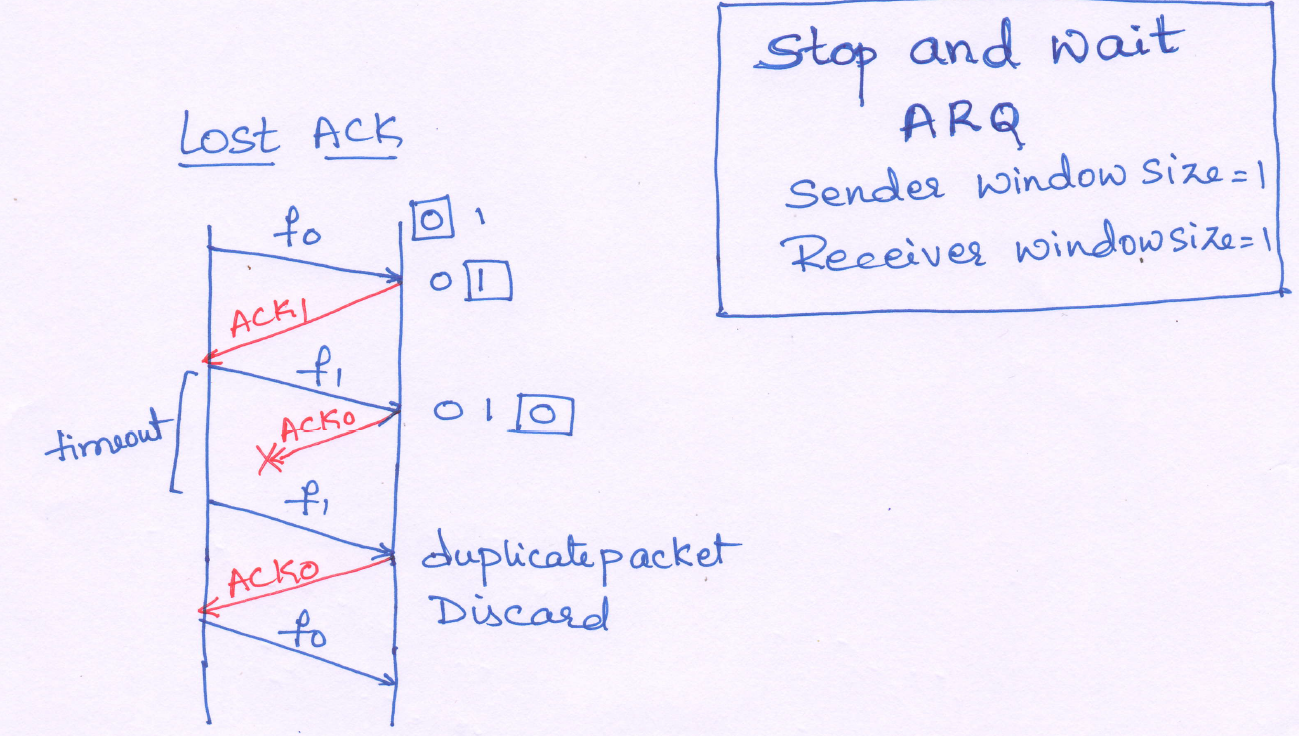 Stop and wait
ARQ
Sender window size=1
Receiver window size=1
Lost ACK
f0
0 1
0 1
ACK1
f1
0 1 0
ACK0
timeout
f1
duplicate packet
ACK0
Discard
f0